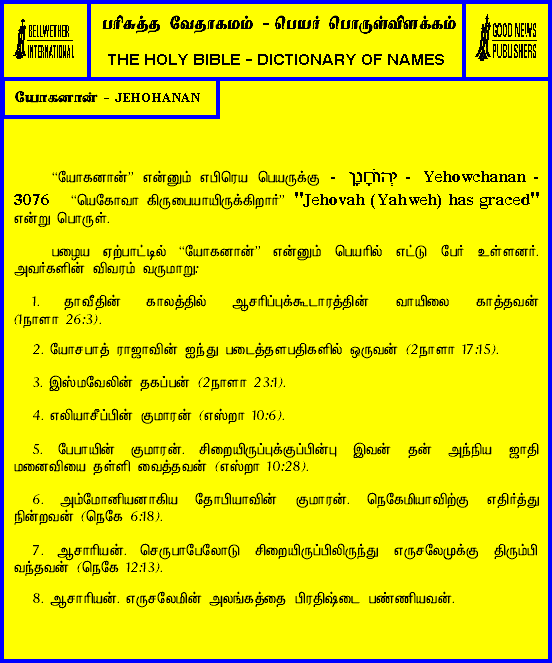 BELLWETHER
INTERNATIONAL
பரிசுத்த வேதாகமம் - பெயர் பொருள்விளக்கம்
THE HOLY BIBLE - DICTIONARY OF NAMES
GOOD NEWS
PUBLISHERS
யோகனான் - JEHOHANAN
“யோகனான்” என்னும் எபிரெய பெயருக்கு - יְהוֹחָנָן - Yehowchanan -
3076 “யெகோவா கிருபையாயிருக்கிறார்” "Jehovah (Yahweh) has graced"
என்று பொருள்.
பழைய ஏற்பாட்டில் “யோகனான்” என்னும் பெயரில் எட்டு பேர் உள்ளனர்.
அவர்களின் விவரம் வருமாறு:
1. தாவீதின் காலத்தில் ஆசரிப்புக்கூடாரத்தின் வாயிலை காத்தவன்
(1நாளா 26:3).
2. யோசபாத் ராஜாவின் ஐந்து படைத்தளபதிகளில் ஒருவன் (2நாளா 17:15).
3. இஸ்மவேலின் தகப்பன் (2நாளா 23:1).
4. எலியாசீப்பின் குமாரன் (எஸ்றா 10:6).
5. பேபாயின் குமாரன். சிறையிருப்புக்குப்பின்பு இவன் தன் அந்நிய ஜாதி
மனைவியை தள்ளி வைத்தவன் (எஸ்றா 10:28).
6. அம்மோனியனாகிய தோபியாவின் குமாரன். நெகேமியாவிற்கு எதிர்த்து
நின்றவன் (நெகே 6:18).
7. ஆசாரியன். செருபாபேலோடு சிறையிருப்பிலிருந்து எருசலேமுக்கு திரும்பி
வந்தவன் (நெகே 12:13).
8. ஆசாரியன். எருசலேமின் அலங்கத்தை பிரதிஷ்டை பண்ணியவன்.